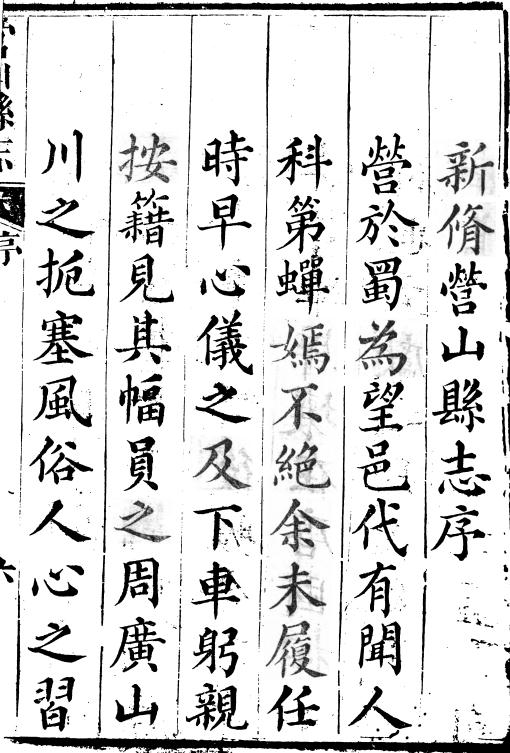 新脩營山縣志序
營於蜀為望邑代有聞人
科第蟬嫣不絕余未履任
時早心儀之及下車躬親
按籍見其幅員之周廣山
川之扼塞風俗人心之習
營山縣志
序
六